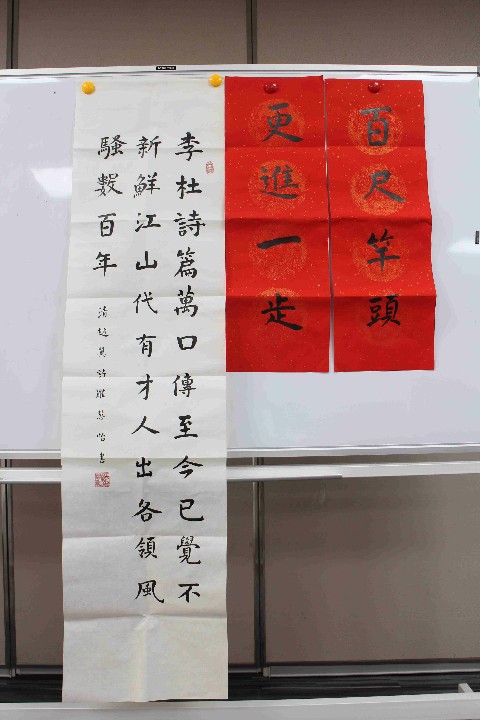 百尺竿頭
更進一步
李杜詩篇萬口傳至今已覺不
新鮮江山代有才人出各領風
騷數百年
清趙翼詩羅怡書